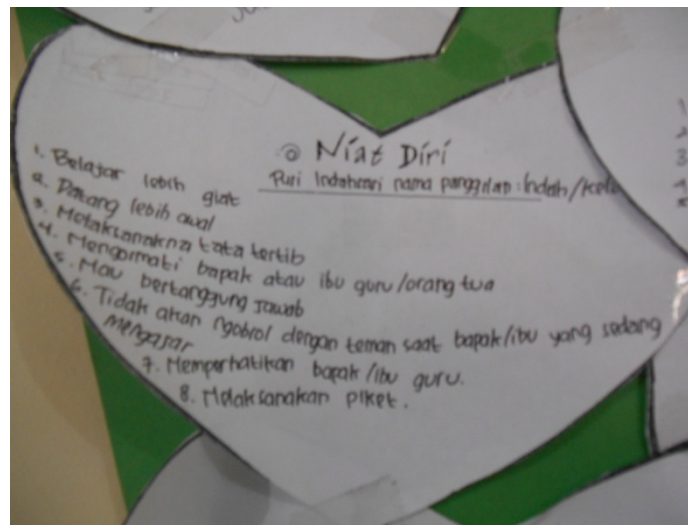 Niat Diri
Puri Indahsari nama panggilan : Indah/
1. Belajar lebih giat
2. Datang lebih awal
3. Melaksanakna tata tertib
4. Mengormati bapak atau ibu guru/orang tua
5. Mau bertanggung jawab
6. Tidak akan ngobrol dengan teman saat bapak/ibu yang sedang
mengajar
7. Memperhatikan bapak/ibu guru.
8. Melaksanakan piket.
1
2
3